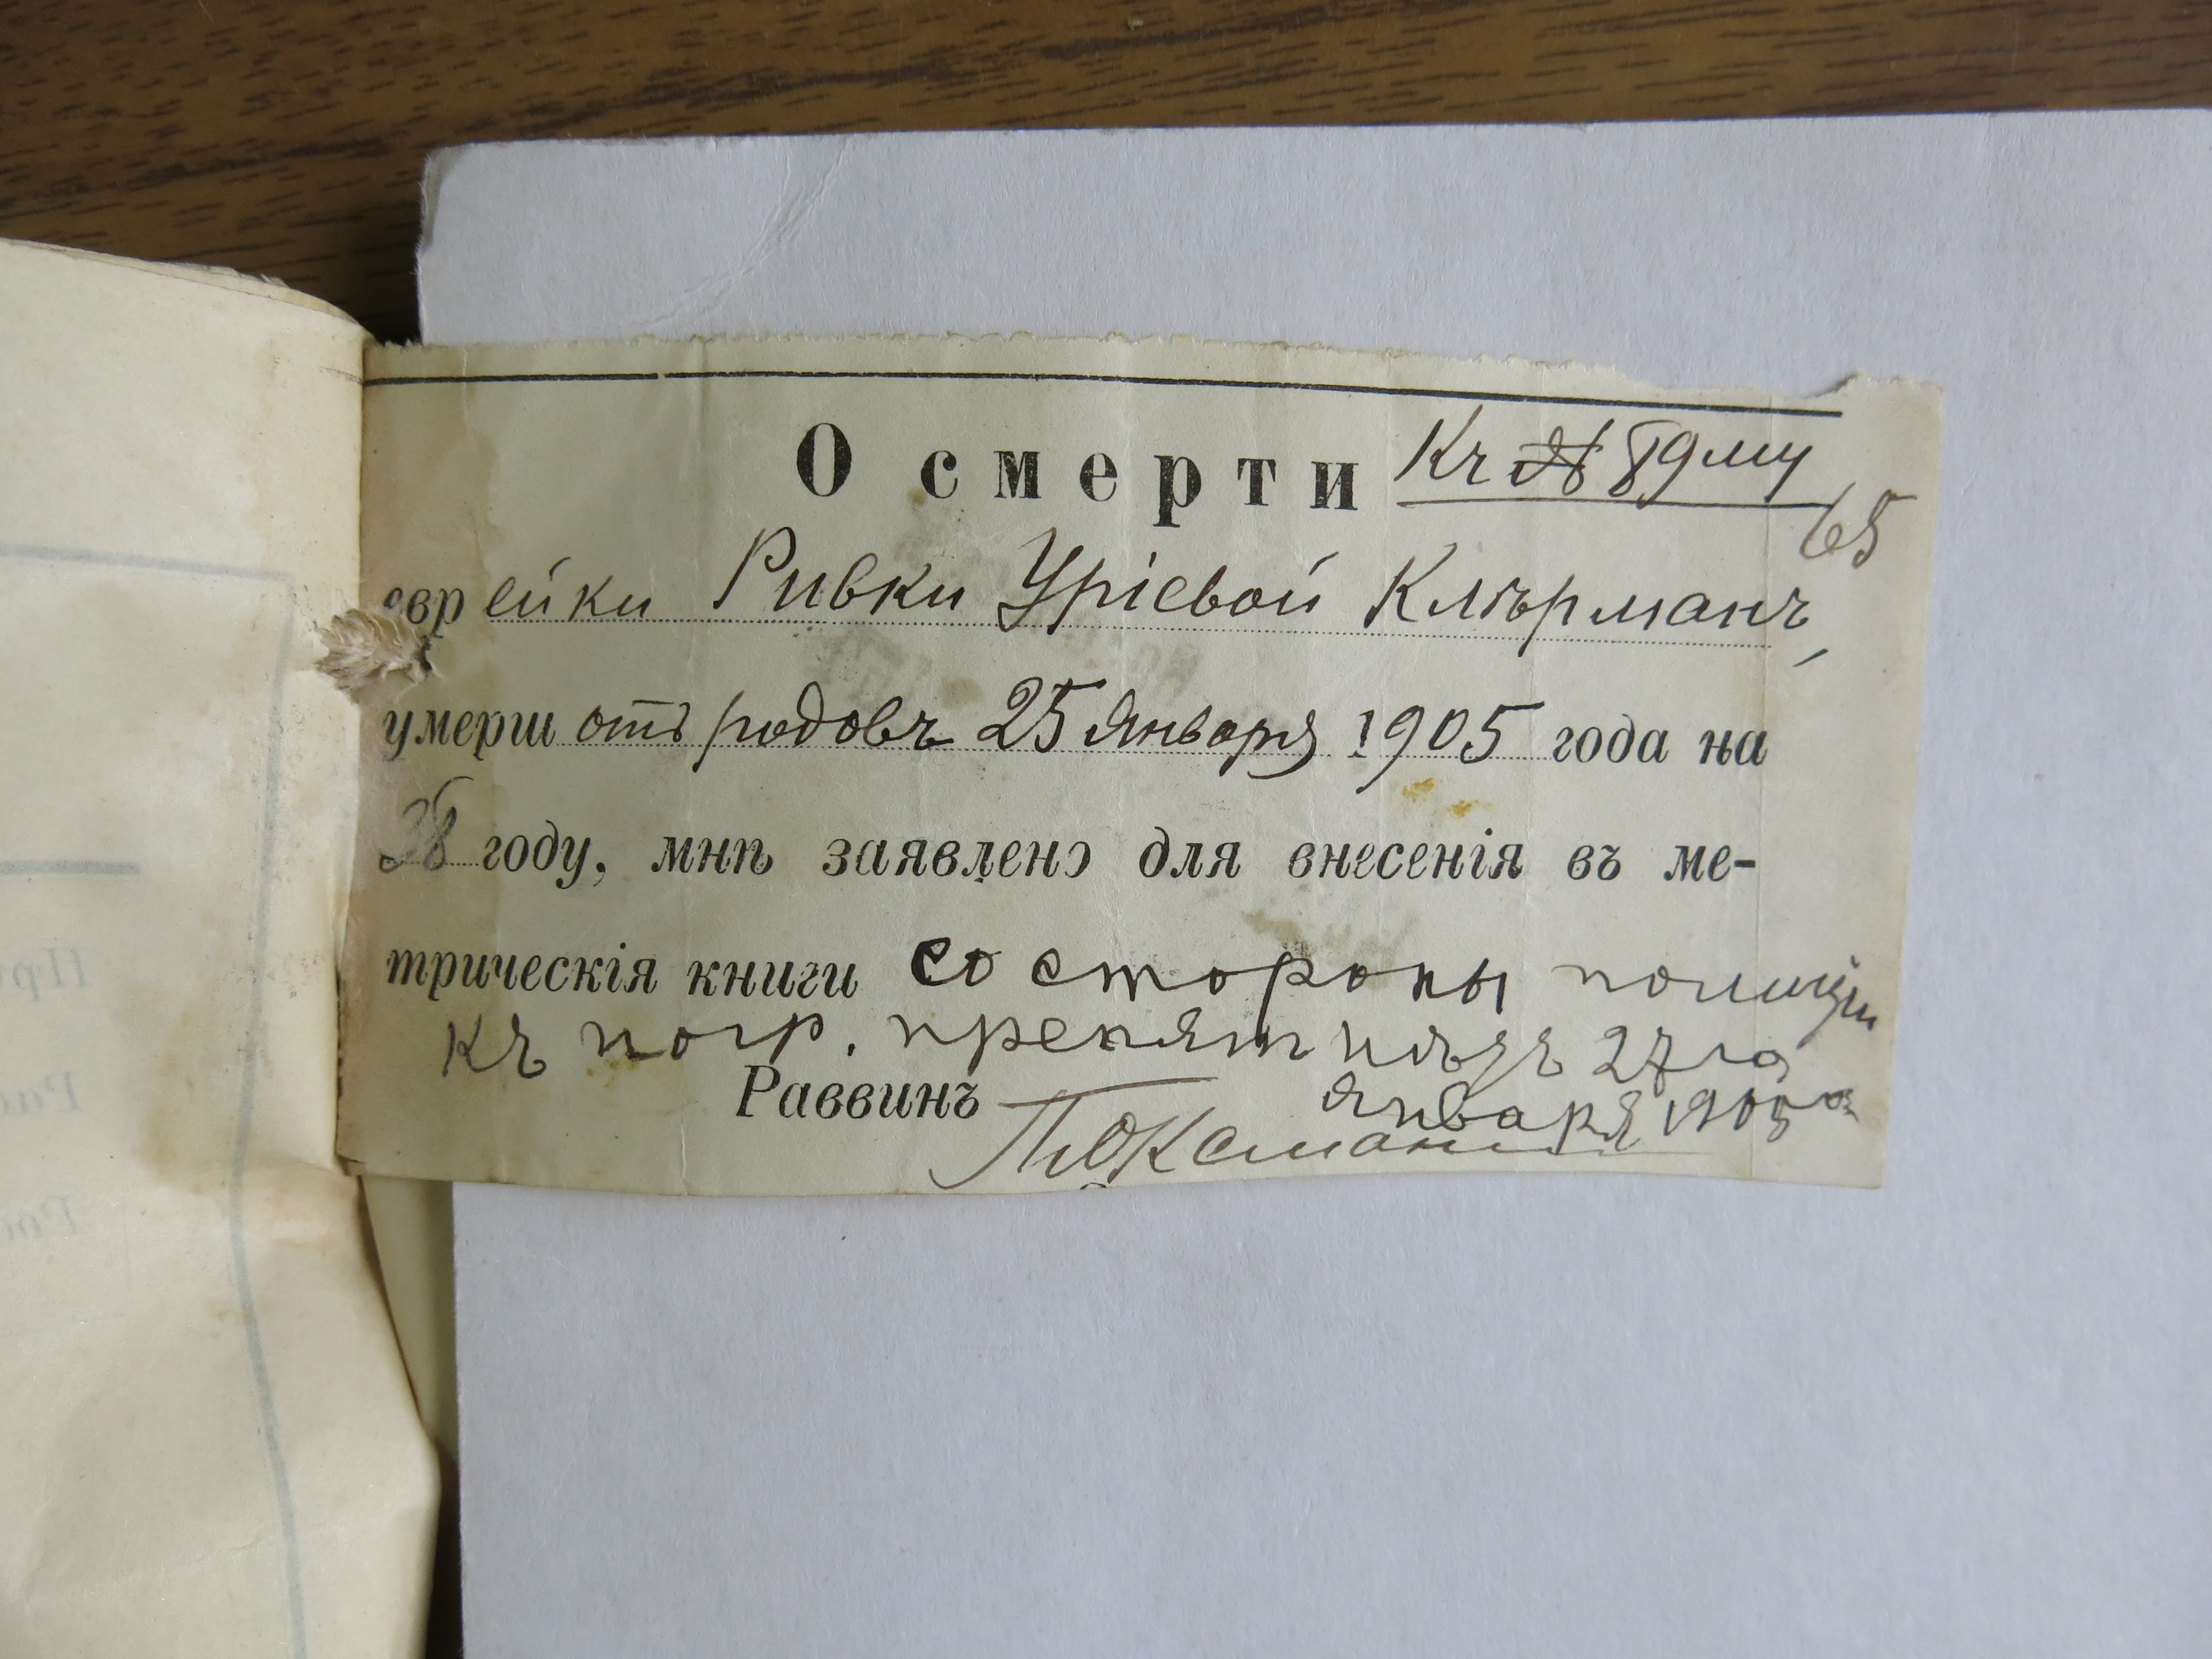 О смерти Къ № 89му
65
еврейки Ривки Урiевой Клѣрманъ,
умерш отъ родовъ 25 Января 1905 года на
38 году, мнѣ заявлено для внесенiя въ ме-
трическiя книги со стороны полицiи
къ погр. препят нѣтъ 27 го
Января 1905 го
Раввинъ